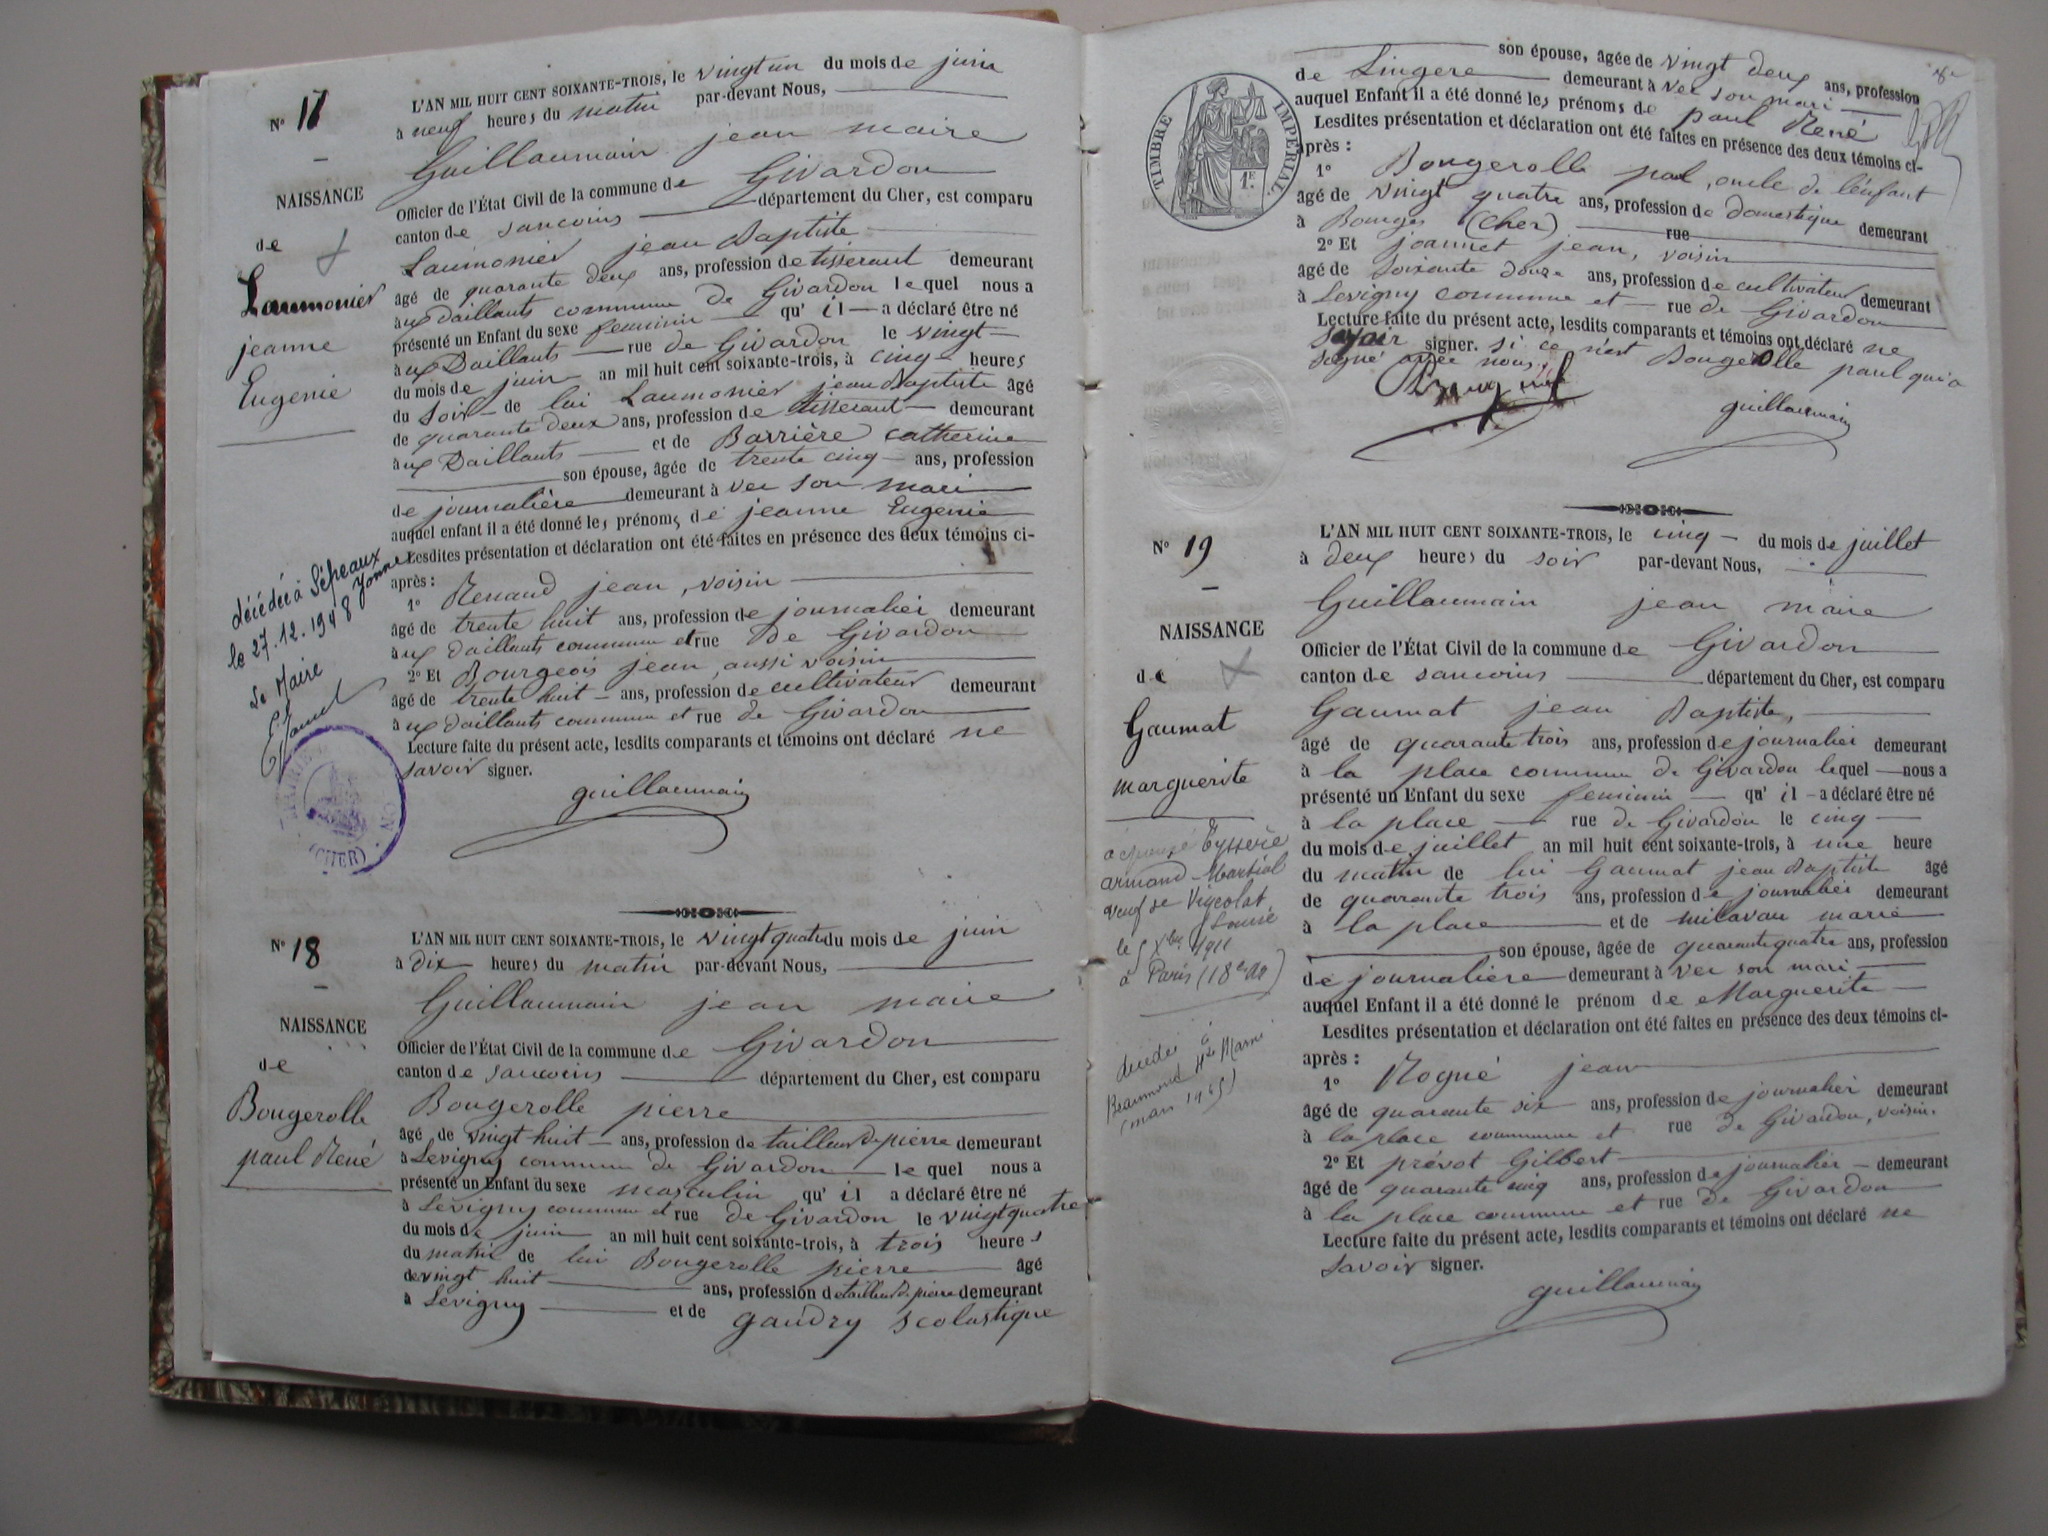 N° 17
NAISSANCE
de
Laumonier
jeanne
Eugenie
L'AN MIL HUIT CENT SOIXANTE-TROIS, le vingt un du mois de juin
à neuf heures du matin par-devant Nous,
Guillaumain jean maire
Officier de l'État Civil de la commune de Givardon
canton de sancoins département du Cher, est comparu
Laumonier jean Baptiste
âgé de quarante deux ans, profession de tisseraut demeurant
aux daillants commune de Givardon lequel nous a
présenté un Enfant du sexe feminin qu'il a déclaré être né
aux Daillants rue de Givardon le vingt
du mois de juin an mil huit cent soixante-trois, à cinq heures
du soir de lui Laumonier jean Baptiste âgé
de quarante deux ans, profession de tisseraut demeurant
aux Daillants et de Barrière catherine
son épouse, âgée de trente cinq ans, profession
de journalière demeurant à vec son mari
auquel enfant il a été donné les prénoms de jeanne Eugenie
Lesdites présentation et déclaration ont été faites en présence des deux témoins ci-
après :
1° Renaud jean, voisin
âgé de trente huit ans, profession de journalier demeurant
aux daillants commune et rue de Givardon
2° Et Bourgeois jean, aussi voisin
âgé de trente huit ans, profession de cultivateur demeurant
aux daillants commune et rue de Givardon
Lecture faite du présent acte, lesdits comparants et témoins ont déclaré ne
savoir signer.
guillaumain
décédée à Sépeaux
Yonne
le 27.12.1948
Le Maire
(CHER)
N° 18
NAISSANCE
de
Bougerolle
paul René
L'AN MIL HUIT CENT SOIXANTE-TROIS, le vingt quatre du mois de juin
à dix heures du matin par-devant Nous,
Guillaumain jean maire
Officier de l'État Civil de la commune de Givardon
canton de sancoins département du Cher, est comparu
Bougerolle pierre
âgé de vingt huit ans, profession de tailleur de pierre demeurant
à Levigny commune de Givardon lequel nous a
présenté un Enfant du sexe masculin qu'il a déclaré être né
à Levigny commune et rue de Givardon le vingt quatre
du mois de juin an mil huit cent soixante-trois, à trois heures
du matin de lui Bougerolle pierre âgé
de vingt huit ans, profession de tailleur de pierre demeurant
à Levigny et de gaudry scolastique
son épouse, âgée de vingt deux ans, profession
de Lingere demeurant à vec son mari
auquel Enfant il a été donné les prénoms de paul René
Lesdites présentation et déclaration ont été faites en présence des deux témoins ci-
après :
TIMBRE IMPERIAL.
1F.
1° Bougerolle paul, oncle de l'enfant
âgé de vingt quatre ans, profession de domestique demeurant
à Bourges (Cher) rue
2° Et joannet jean, voisin
âgé de soixante douze ans, profession de cultivateur demeurant
à Levigny commune et rue de Givardon
Lecture faite du présent acte, lesdits comparants et témoins ont déclaré ne
savoir signer. si ce n'est Bougerolle paul qui a
signé avec nous.
guillaumain
N° 19
NAISSANCE
de
Gaumat
marguerite
L'AN MIL HUIT CENT SOIXANTE-TROIS, le cinq du mois de juillet
à deux heures du soir par-devant Nous,
Guillaumain jean maire
Officier de l'État Civil de la commune de Givardon
canton de sancoins département du Cher, est comparu
Gaumat jean Baptiste,
âgé de quarante trois ans, profession de journalier demeurant
à la place commune de Givardon lequel nous a
présenté un Enfant du sexe feminin qu'il a déclaré être né
à la place rue de Givardon le cinq
du mois de juillet an mil huit cent soixante-trois, à une heure
du matin de lui Gaumat jean Baptiste âgé
de quarante trois ans, profession de journalier demeurant
à la place et de milavau marie
son épouse, âgée de quarante quatre ans, profession
de journalière demeurant à vec son mari
auquel Enfant il a été donné le prénom de Marguerite
Lesdites présentation et déclaration ont été faites en présence des deux témoins ci-
après :
1° Rogné jean
âgé de quarante six ans, profession de journalier demeurant
à la place commune et rue de Givardon, voisin.
2° Et prévot Gilbert
âgé de quarante cinq ans, profession de journalier demeurant
à la place commune et rue de Givardon
Lecture faite du présent acte, lesdits comparants et témoins ont déclaré ne
savoir signer.
guillaumain
a épousé Eysserie
armand-Martial
veuf de Vigeolat
Louise
le 5 Xbre 1911
à Paris (18e ar)
décédée à
Beaumont Hte Marne